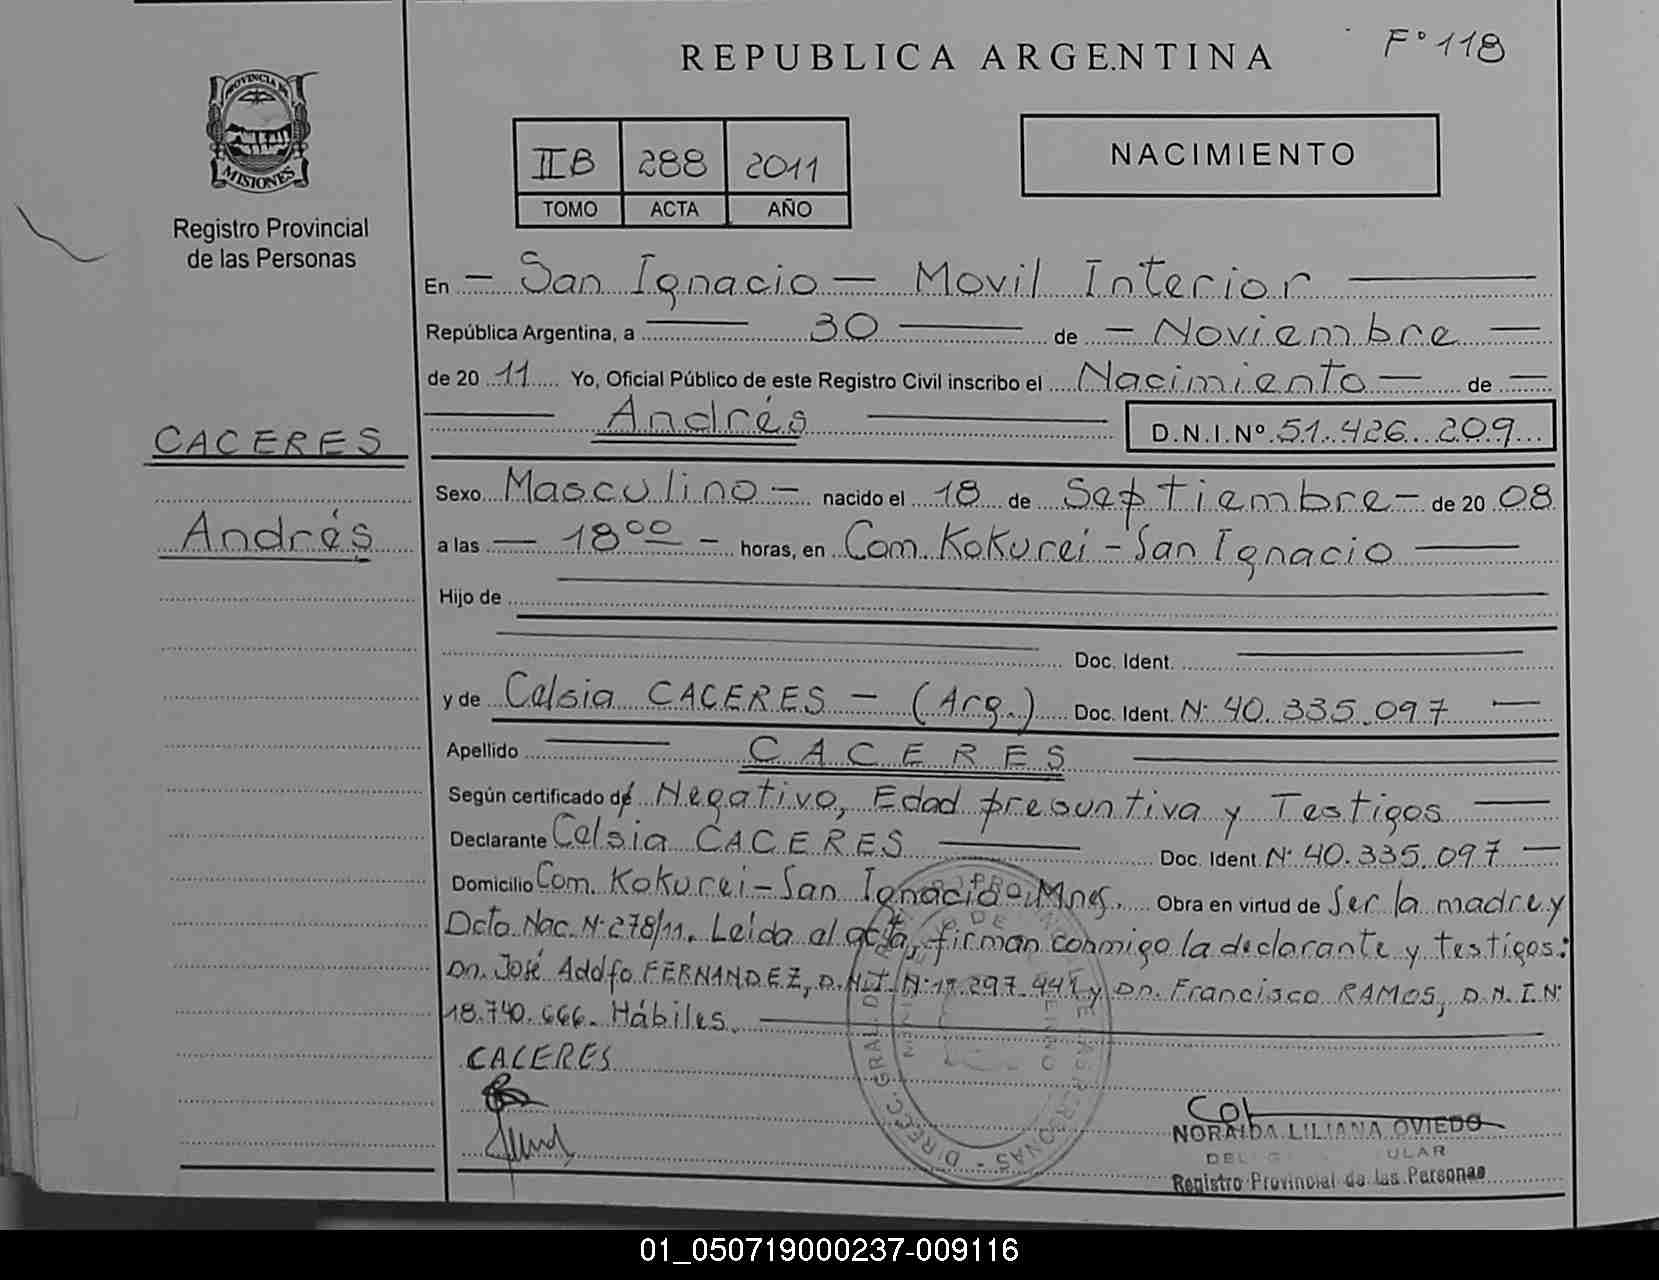 F° 118
REPUBLICA ARGENTINA
PROVINCIA DE
MISIONES
Registro Provincial
de las Personas
II B 288 2011
TOMO ACTA AÑO
NACIMIENTO
En — San Ignacio — Movil Interior —
República Argentina, a — 30 — de — Noviembre —
de 20 11 Yo, Oficial Público de este Registro Civil inscribo el Nacimiento — de —
— Andrés — D.N.I.Nº 51.426.209
CACERES
Andrés
Sexo Masculino — nacido el 18 de Septiembre — de 20 08
a las — 18 00 — horas, en Com. Kokurei - San Ignacio —
Hijo de —
— Doc. Ident. —
y de Celsia CACERES — (Arg.) Doc. Ident. N: 40.335.097 —
Apellido — CACERES —
Según certificado de Negativo, Edad presuntiva y Testigos —
Declarante Celsia CACERES — Doc. Ident. N: 40.335.097 —
Domicilio Com. Kokurei - San Ignacio - Mnes. Obra en virtud de Ser la madre y
Dcto. Nac. N: 278/11. Leida el acta, firman conmigo la declarante y testigos:
Dn. José Adolfo FERNANDEZ, D.N.I. N: 17.297.441 y Dn. Francisco RAMOS, D.N.I. N:
18.740.666. Hábiles. —
CACERES
DIREC. GRAL. D
NORAIDA LILIANA OVIEDO
Registro Provincial de las Personas
01_050719000237-009116